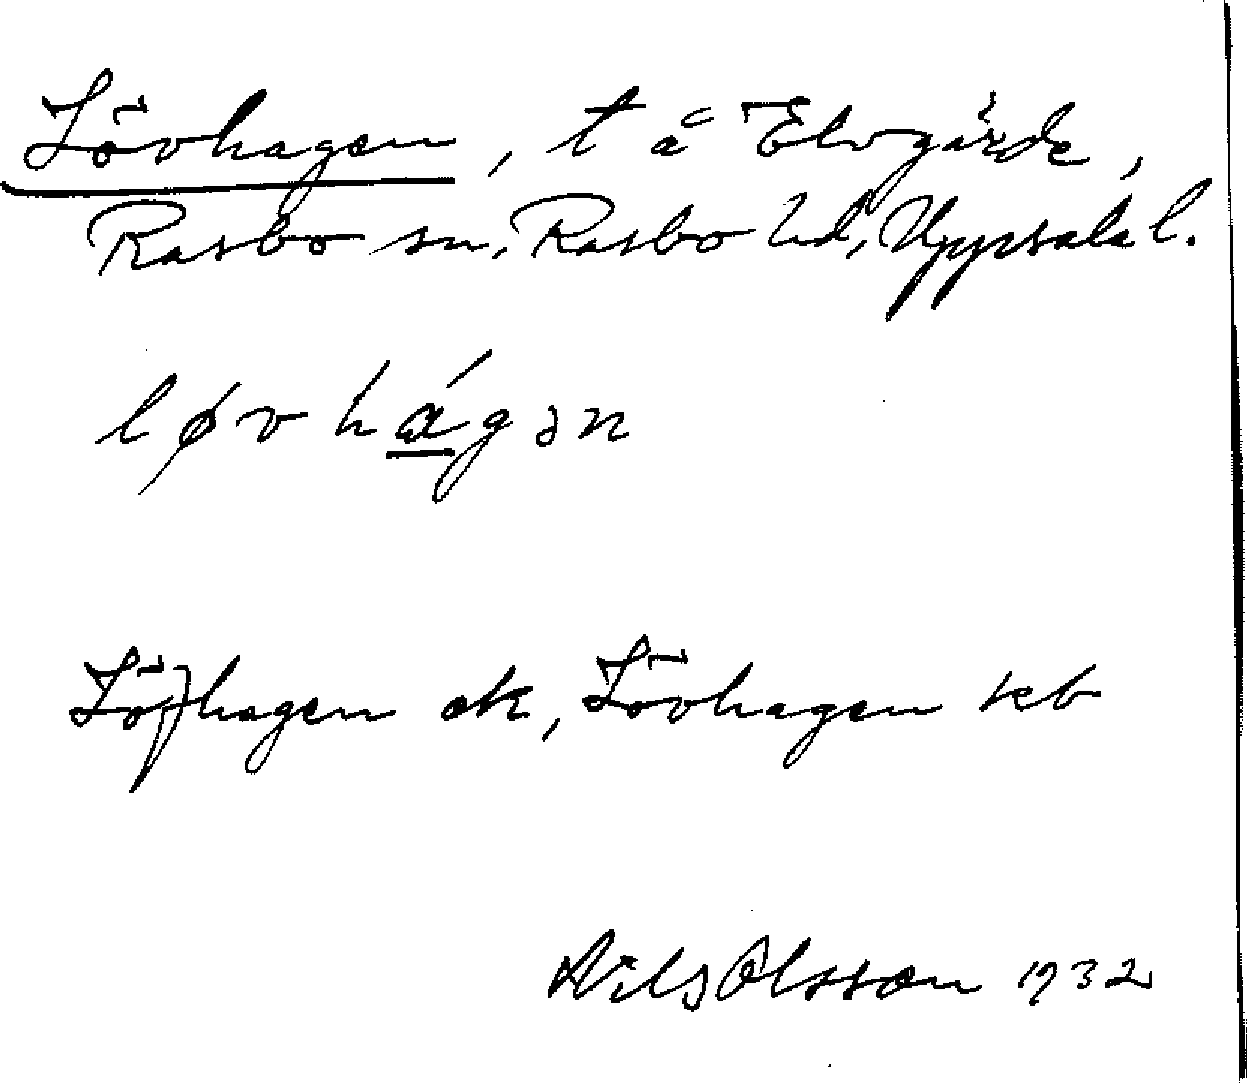 Lövhagen, t å Elvgärde,
Rasbo sn, Rasbo hd, Uppsala l.
løvhágən
Löfhagen ek, Lövhagen kb
Nils Olsson 1932